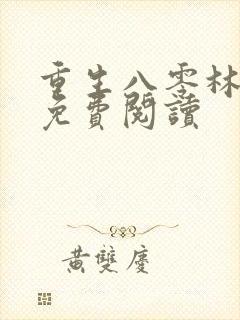 重生八零林
免費閱讀
黃雙慶